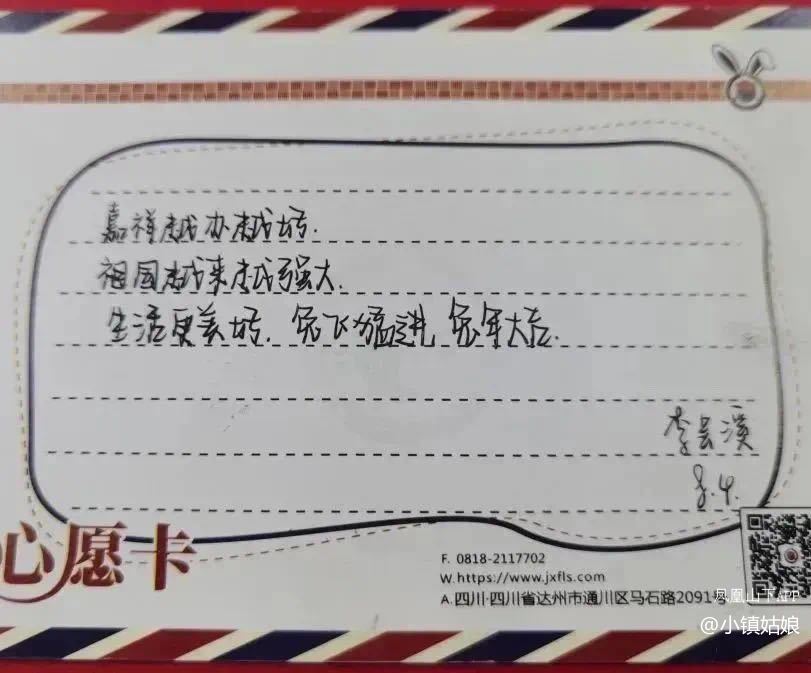 嘉祥越办越好.
祖国越来越强大.
生活更美好. 兔飞猛进 兔年大吉.
李芸溪
8.4.
心愿卡
F. 0818-2117702
W.https://www.jxfls.com
A.四川·四川省达州市通川区马石路2091号
凤凰山下APP
@小镇姑娘